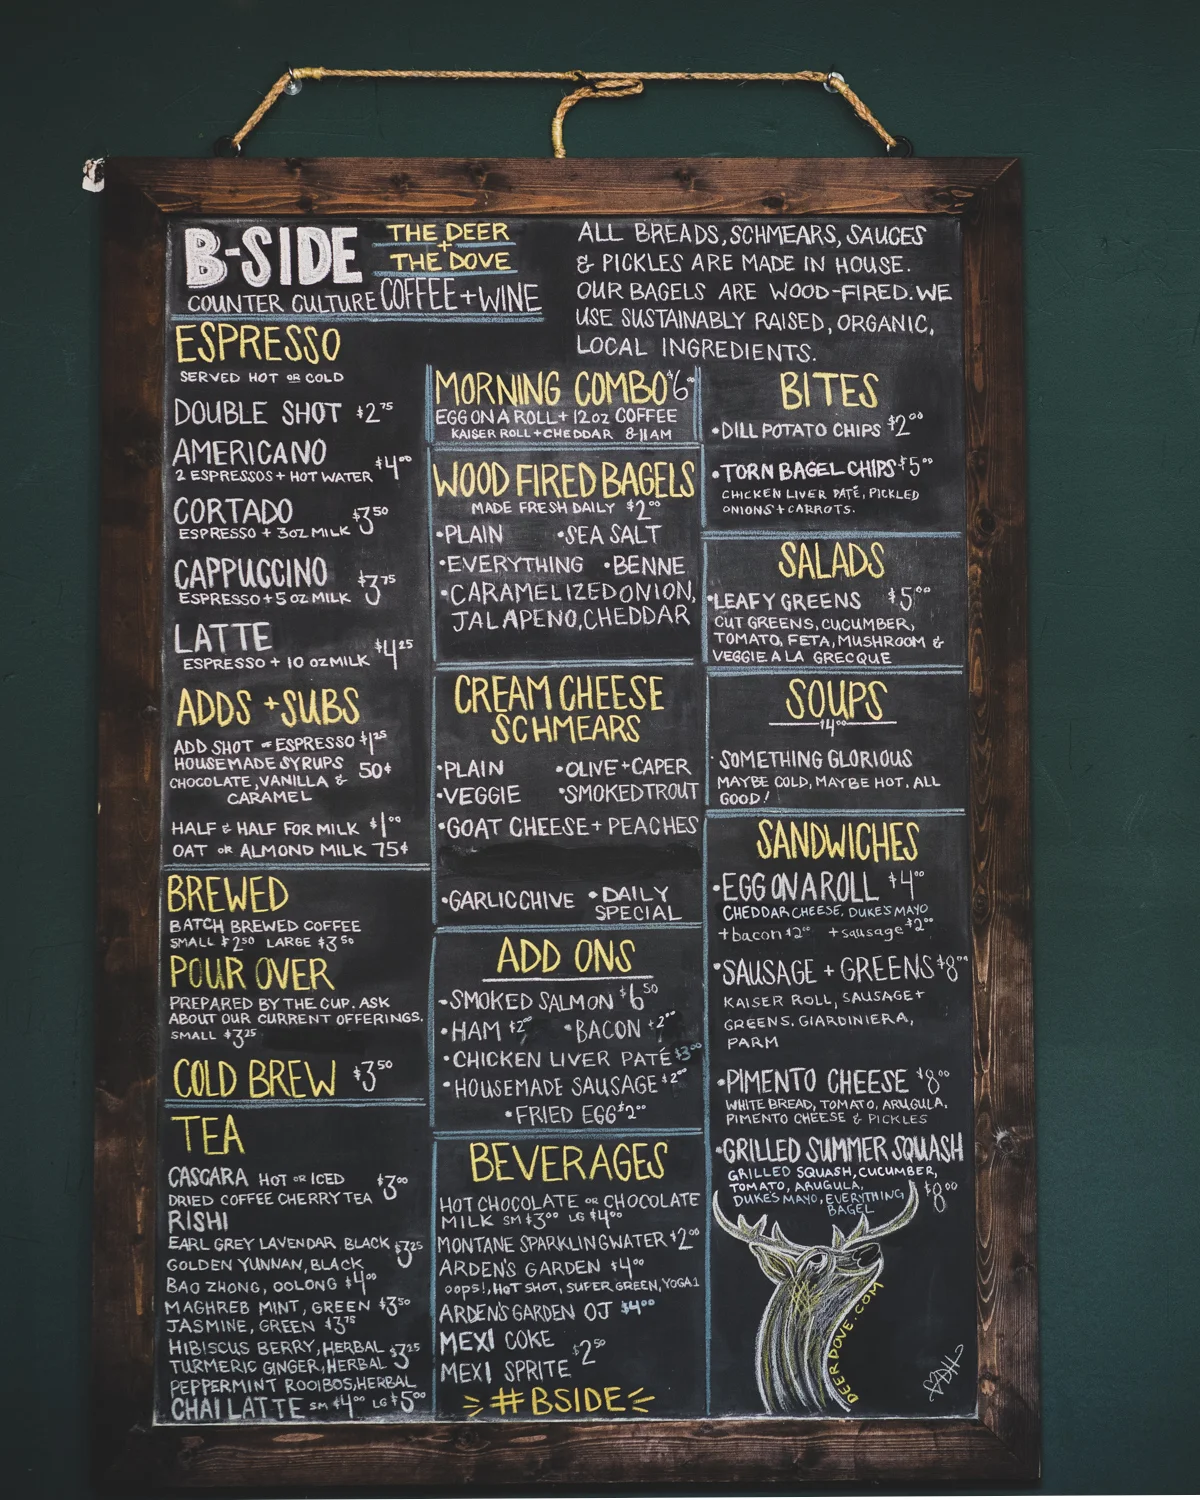 B-SIDE
THE DEER
+
THE DOVE
COUNTER CULTURE COFFEE + WINE
ALL BREADS, SCHMEARS, SAUCES
& PICKLES ARE MADE IN HOUSE.
OUR BAGELS ARE WOOD-FIRED. WE
USE SUSTAINABLY RAISED, ORGANIC,
LOCAL INGREDIENTS.
ESPRESSO
SERVED HOT OR COLD
DOUBLE SHOT $2.75
AMERICANO $4.00
2 ESPRESSOS + HOT WATER
CORTADO $3.50
ESPRESSO + 3OZ MILK
CAPPUCCINO $3.75
ESPRESSO + 5 OZ MILK
LATTE $4.25
ESPRESSO + 10 OZ MILK
ADDS + SUBS
ADD SHOT OF ESPRESSO $1.25
HOUSEMADE SYRUPS 50¢
CHOCOLATE, VANILLA &
CARAMEL
HALF & HALF FOR MILK $1.00
OAT OR ALMOND MILK 75¢
BREWED
BATCH BREWED COFFEE
SMALL $2.50 LARGE $3.50
POUR OVER
PREPARED BY THE CUP. ASK
ABOUT OUR CURRENT OFFERINGS.
SMALL $3.25
COLD BREW $3.50
TEA
CASCARA HOT OR ICED $3.00
DRIED COFFEE CHERRY TEA
RISHI
EARL GREY LAVENDAR, BLACK $3.25
GOLDEN YUNNAN, BLACK
BAO ZHONG, OOLONG $4.00
MAGHREB MINT, GREEN $3.50
JASMINE, GREEN $3.75
HIBISCUS BERRY, HERBAL $3.25
TURMERIC GINGER, HERBAL
PEPPERMINT ROOIBOS, HERBAL
CHAI LATTE SM $4.00 LG $5.00
MORNING COMBO $6
EGG ON A ROLL + 12oz COFFEE
KAISER ROLL + CHEDDAR 8-11AM
WOOD FIRED BAGELS
MADE FRESH DAILY $2.00
•PLAIN •SEA SALT
•EVERYTHING •BENNE
•CARAMELIZED ONION,
JALAPENO, CHEDDAR
CREAM CHEESE
SCHMEARS
•PLAIN •OLIVE + CAPER
•VEGGIE •SMOKED TROUT
•GOAT CHEESE + PEACHES
•GARLIC CHIVE •DAILY
SPECIAL
ADD ONS
•SMOKED SALMON $6.50
•HAM $2.00 •BACON $2.00
•CHICKEN LIVER PATÉ $3.00
•HOUSEMADE SAUSAGE $2.00
•FRIED EGG $2.00
BEVERAGES
HOT CHOCOLATE OR CHOCOLATE
MILK SM $3.00 LG $4.00
MONTANE SPARKLING WATER $2.00
ARDEN'S GARDEN $4.00
OOPS!, HOT SHOT, SUPER GREEN, YOGA 1
ARDEN'S GARDEN OJ $4.00
MEXI COKE
$2.50
MEXI SPRITE
#BSIDE
BITES
•DILL POTATO CHIPS $2.00
•TORN BAGEL CHIPS $5.00
CHICKEN LIVER PATÉ, PICKLED
ONIONS + CARROTS.
SALADS
•LEAFY GREENS $5.00
CUT GREENS, CUCUMBER,
TOMATO, FETA, MUSHROOM &
VEGGIE A LA GRECQUE
SOUPS
$4.00
•SOMETHING GLORIOUS
MAYBE COLD, MAYBE HOT. ALL
GOOD!
SANDWICHES
•EGG ON A ROLL $4.00
CHEDDAR CHEESE, DUKE'S MAYO
+bacon $2.00 +sausage $2.00
•SAUSAGE + GREENS $8.00
KAISER ROLL, SAUSAGE +
GREENS, GIARDINIERA,
PARM
•PIMENTO CHEESE $8.00
WHITE BREAD, TOMATO, ARUGULA,
PIMENTO CHEESE & PICKLES
•GRILLED SUMMER SQUASH
GRILLED SQUASH, CUCUMBER,
TOMATO, ARUGULA, $8.00
DUKE'S MAYO, EVERYTHING
BAGEL
DEERDOVE.COM